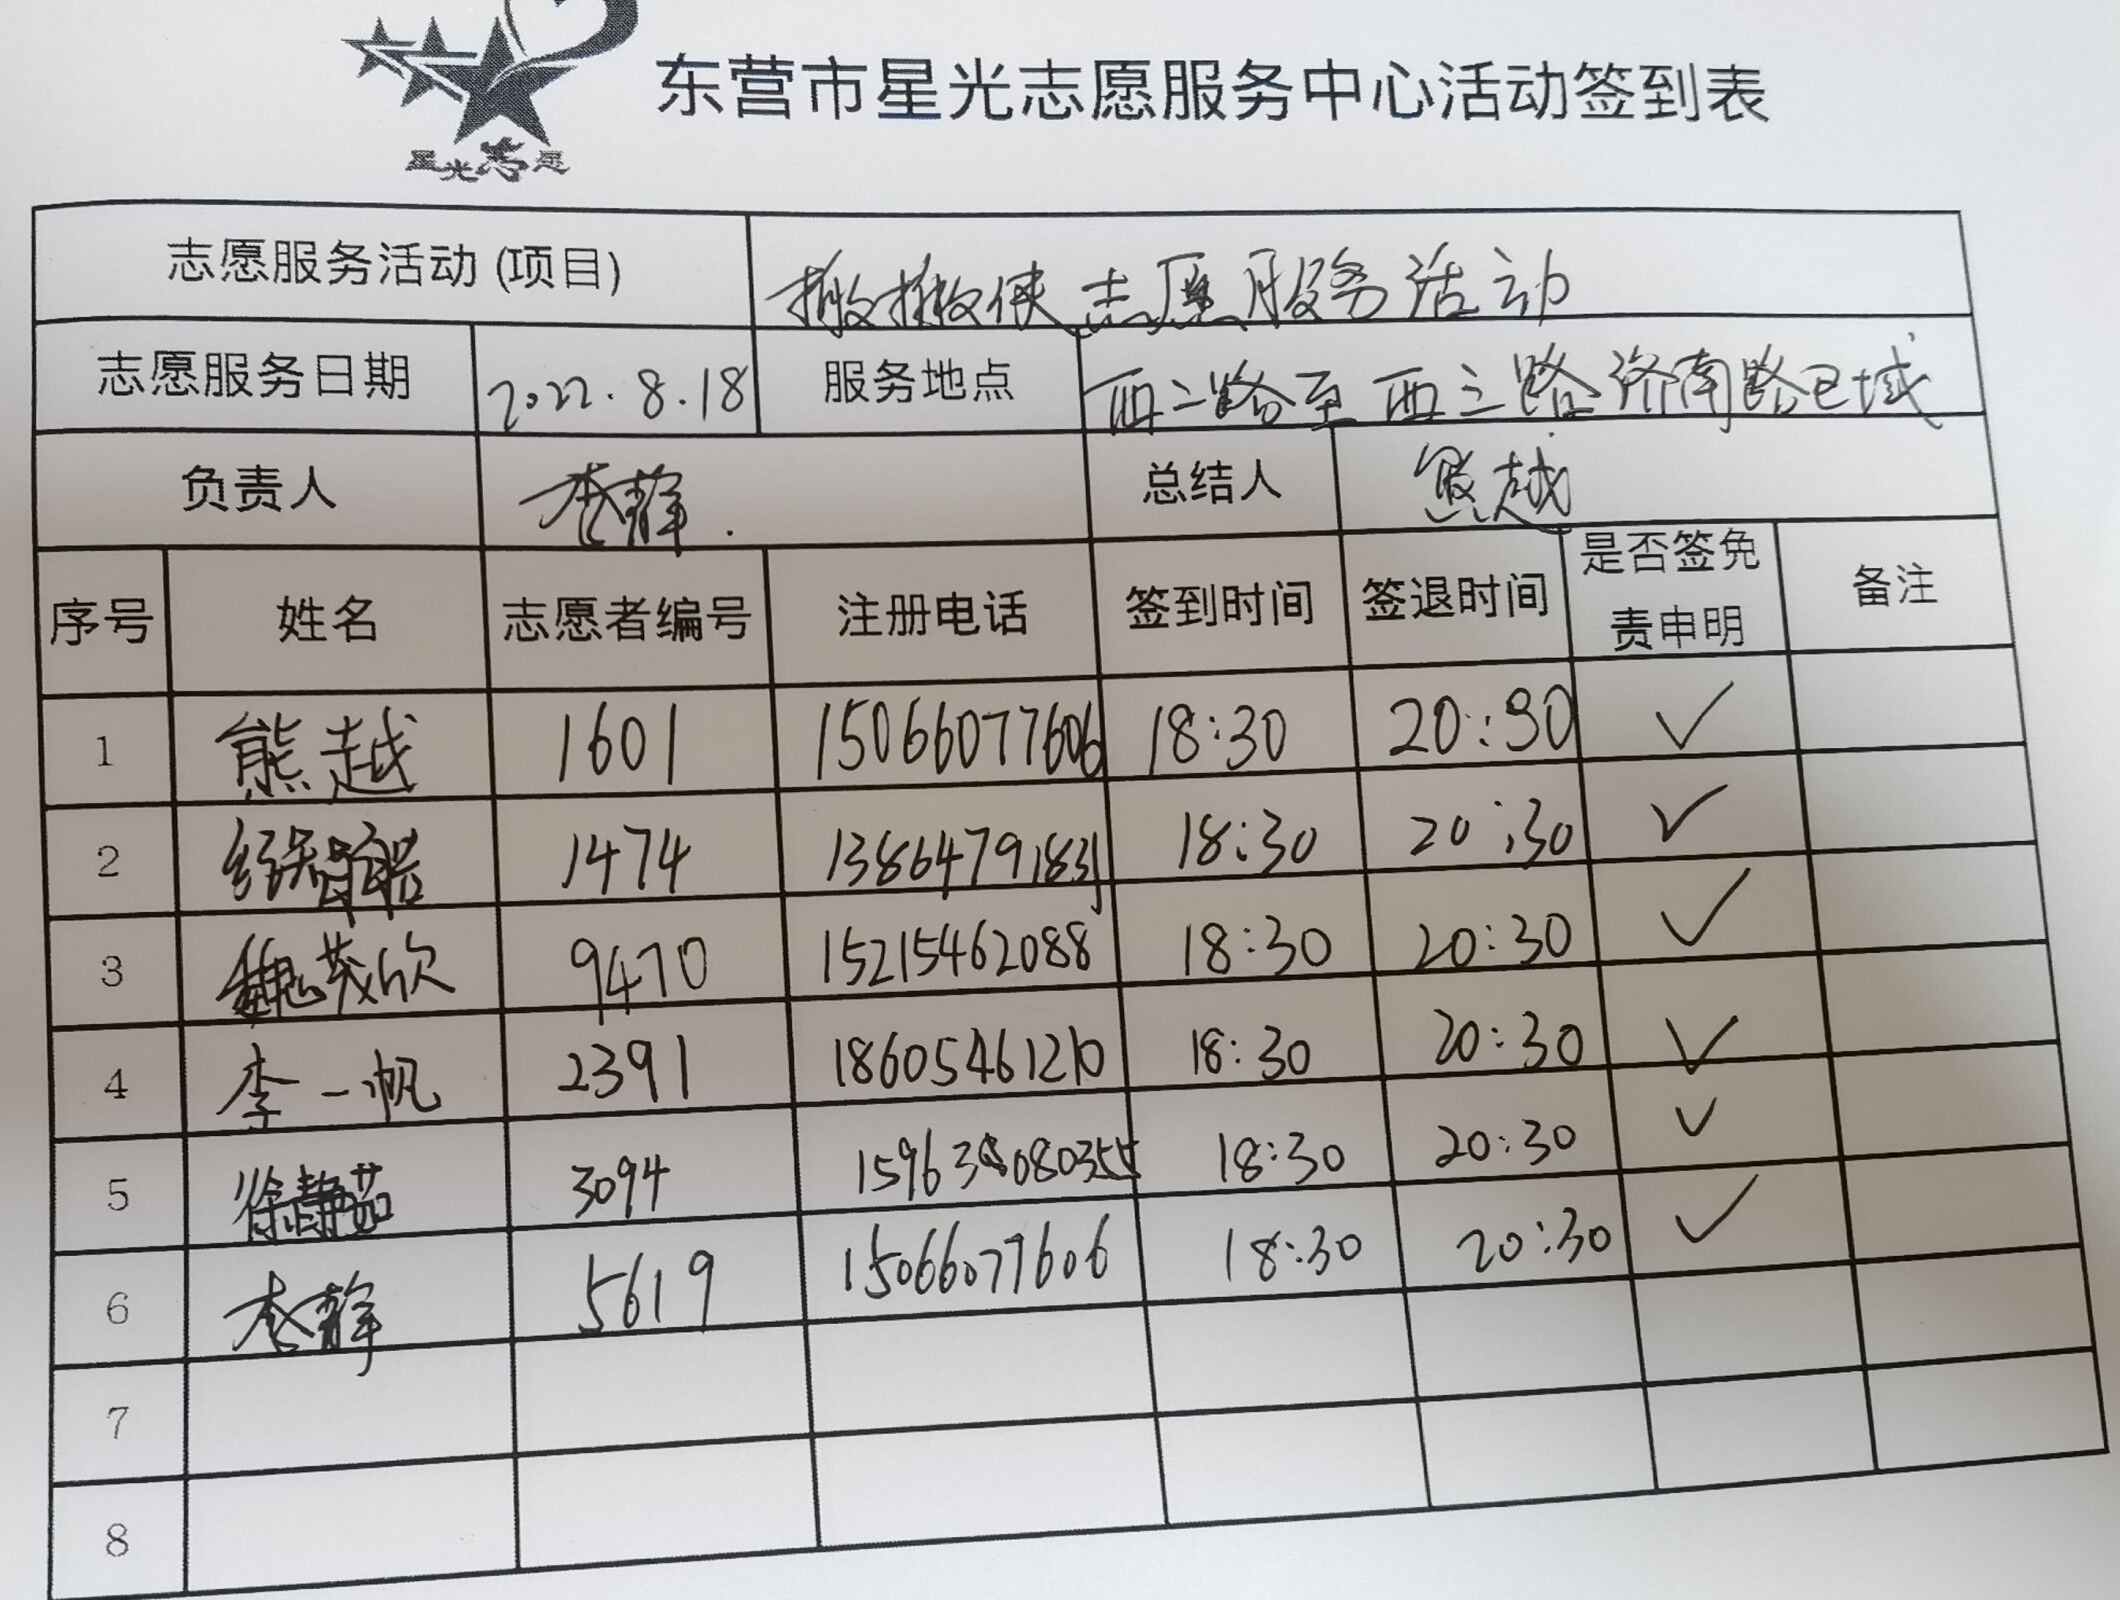 星光志愿
东营市星光志愿服务中心活动签到表
志愿服务活动(项目) 搬搬侠志愿服务活动
志愿服务日期 2022.8.18 服务地点 西二路至西三路济南路区域
负责人 李静. 总结人 熊越
序号 姓名 志愿者编号 注册电话 签到时间 签退时间 是否签免责申明 备注
1 熊越 1601 15066077606 18:30 20:30 ✓
2 1474 13864791831 18:30 20:30 ✓
3 魏茂欣 9470 15215462088 18:30 20:30 ✓
4 李一帆 2391 18605461210 18:30 20:30 ✓
5 徐静茹 3094 18:30 20:30 ✓
6 李静 5619 15066077606 18:30 20:30 ✓
7
8